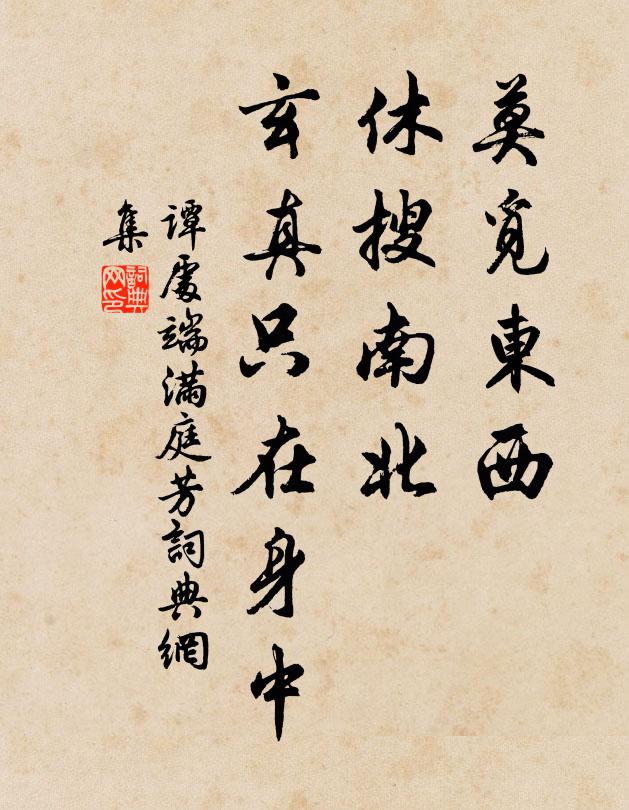 莫覓東西
休搜南北
玄真只在身中
譚處端滿庭芳詞典網
集
詞典
网印